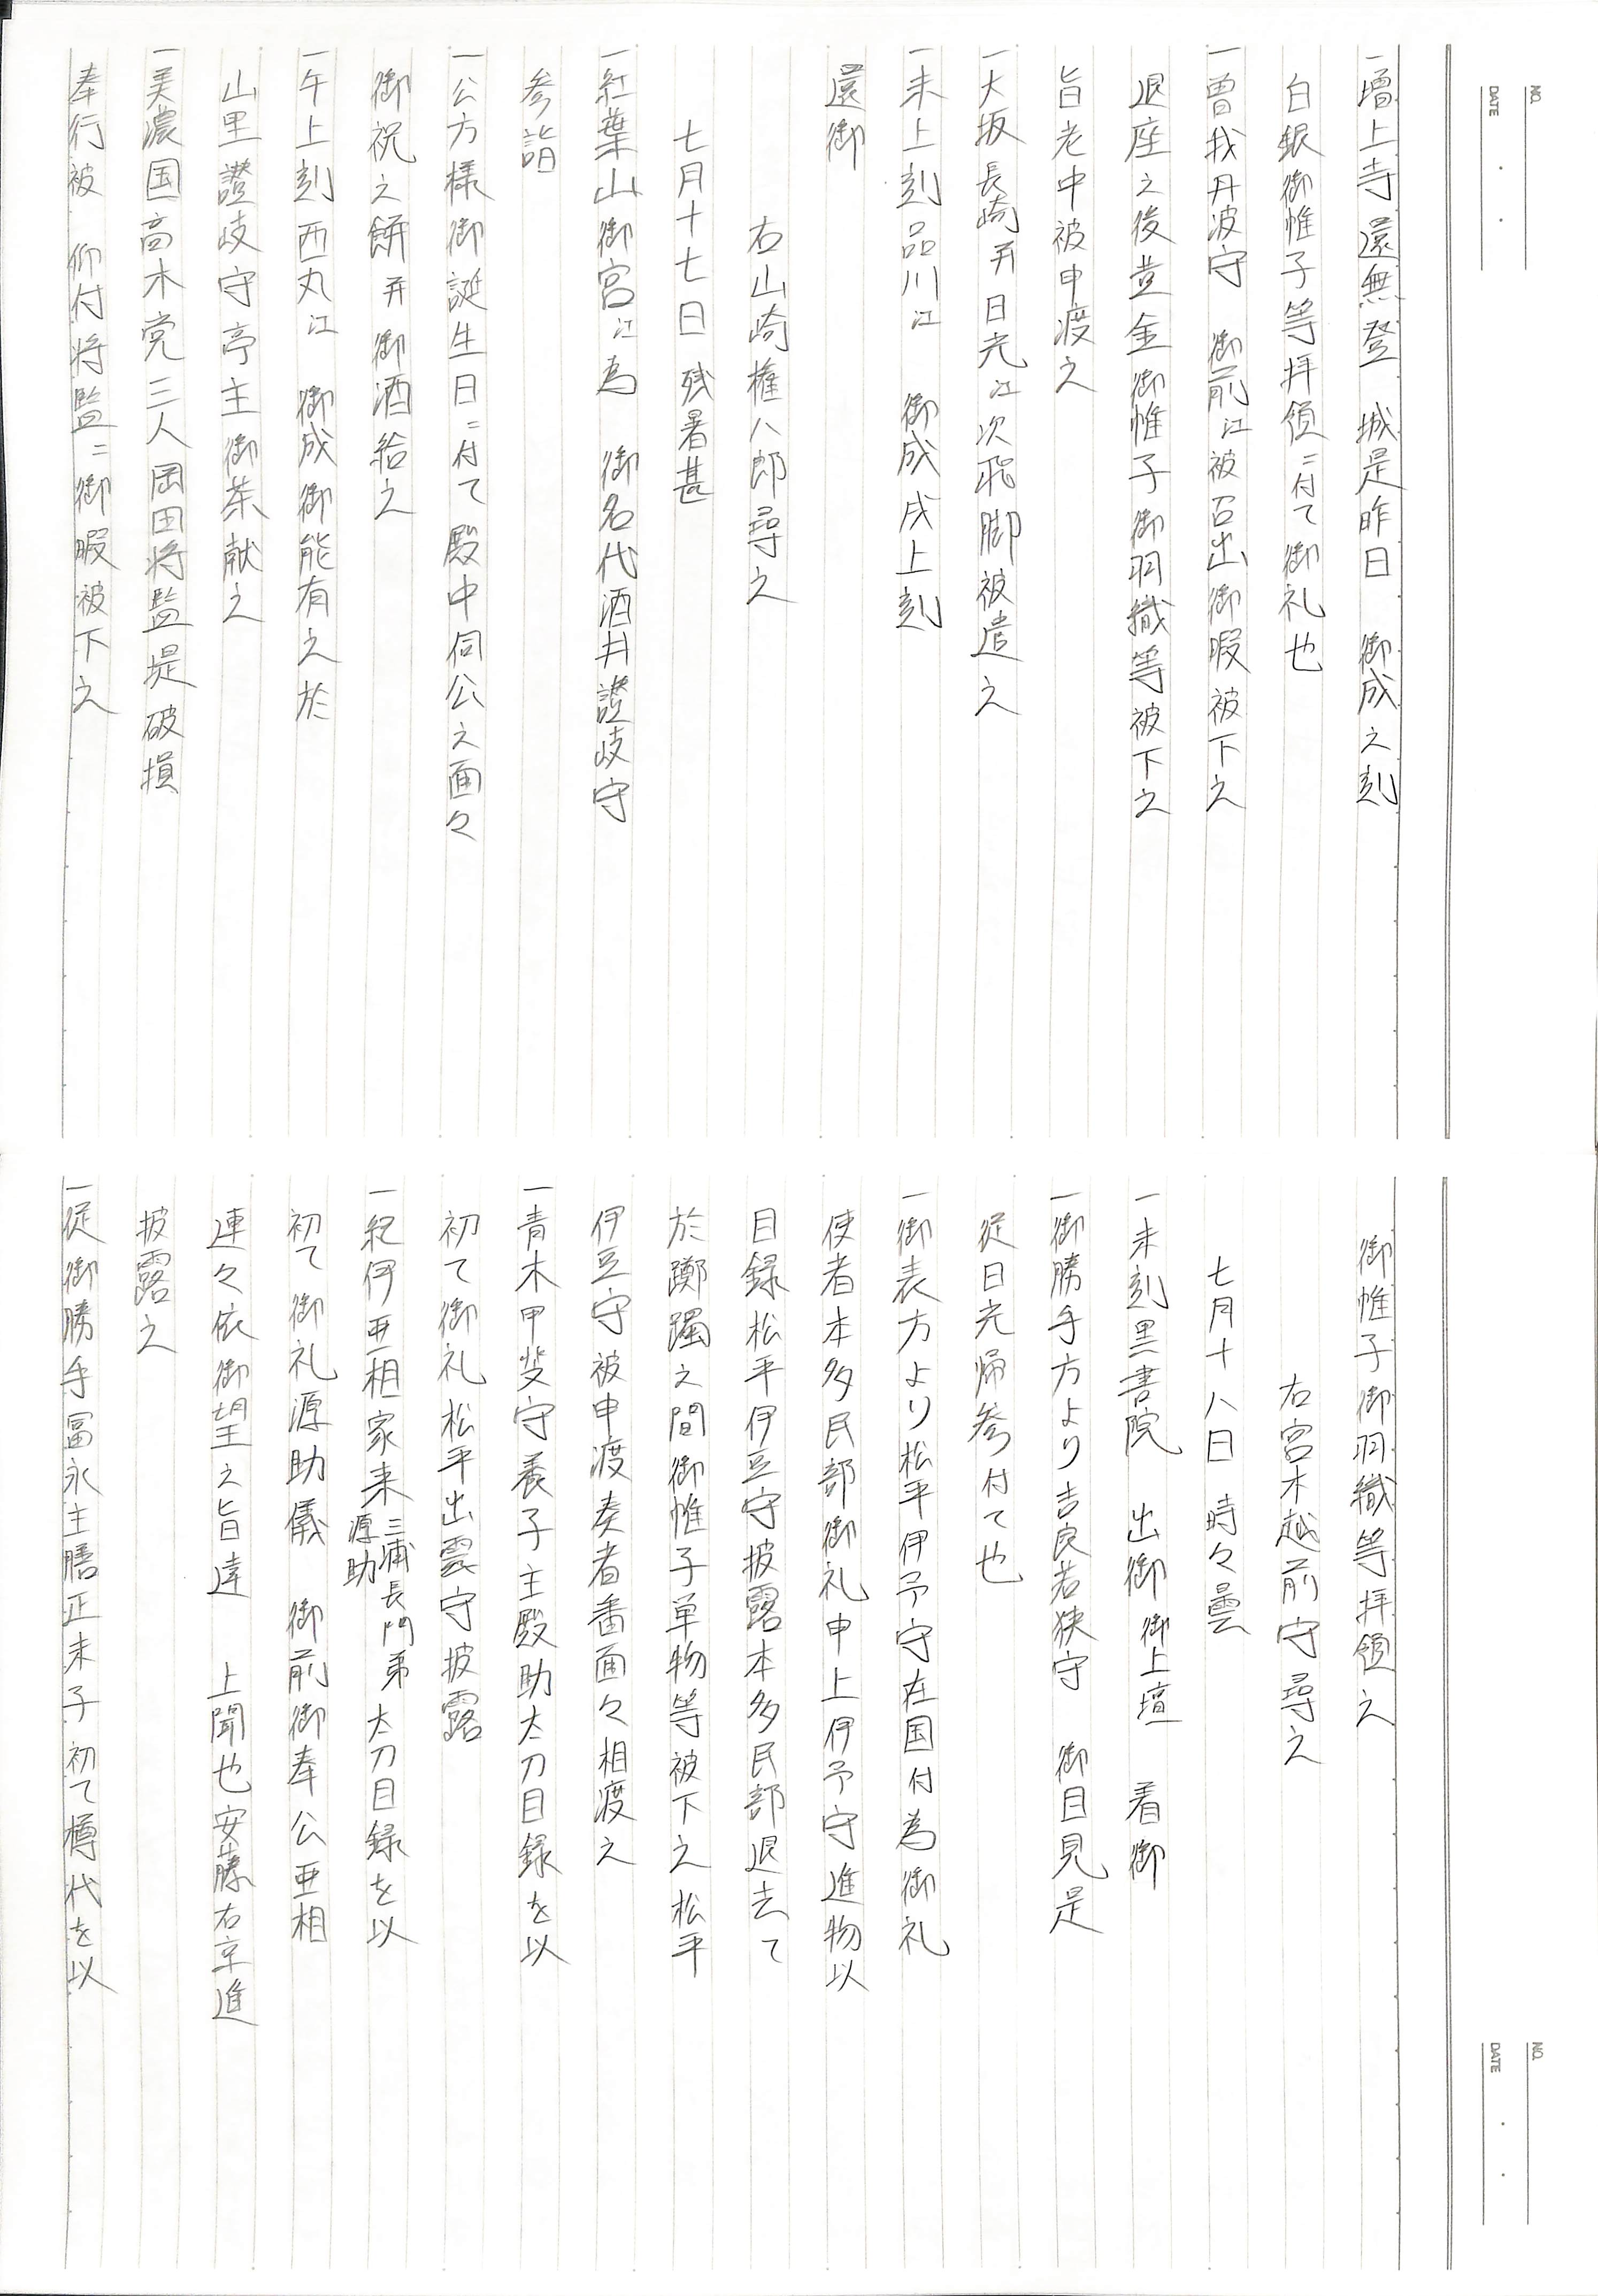 NO.
DATE
一増上寺還無登 城是昨日 御成之刻
白銀御帷子等拝領ニ付て御礼也
一曽我丹波守 御前江被召出御暇被下之
退座之後黄金御帷子御羽織等被下之
旨老中被申渡之
一大坂長崎并日光江次飛脚被遣之
一未上刻品川江 御成戌上刻
還御
右山崎権八郎尋之
七月十七日 残暑甚
一紅葉山御宮江為 御名代酒井讃岐守
参詣
一公方様御誕生日ニ付て殿中伺公之面々
御祝之餅并御酒給之
一午上刻西丸江 御成御能有之於
山里讃岐守亭主御茶献之
一美濃国高木党三人岡田将監堤破損
奉行被 仰付将監ニ御暇被下之
NO.
DATE
御帷子御羽織等拝領之
右宮木越前守尋之
七月十八日 時々曇
一未刻黒書院 出御 御上壇 着御
一御勝手方より吉良若狭守 御目見是
従日光帰参付て也
一御表方より松平伊予守在国付為御礼
使者本多民部御礼申上伊予守進物以
目録松平伊豆守披露本多民部退去て
於躑躅之間御帷子単物等被下之松平
伊豆守被申渡奏者番面々相渡之
一青木甲斐守養子主殿助太刀目録を以
初て御礼松平出雲守披露
一紀伊亜相家来 三浦長門弟 源助 太刀目録を以
初て御礼源助儀 御前御奉公亜相
連々依御望之旨達 上聞也安藤右京進
披露之
一従御勝手冨永主膳正末子初て樽代を以